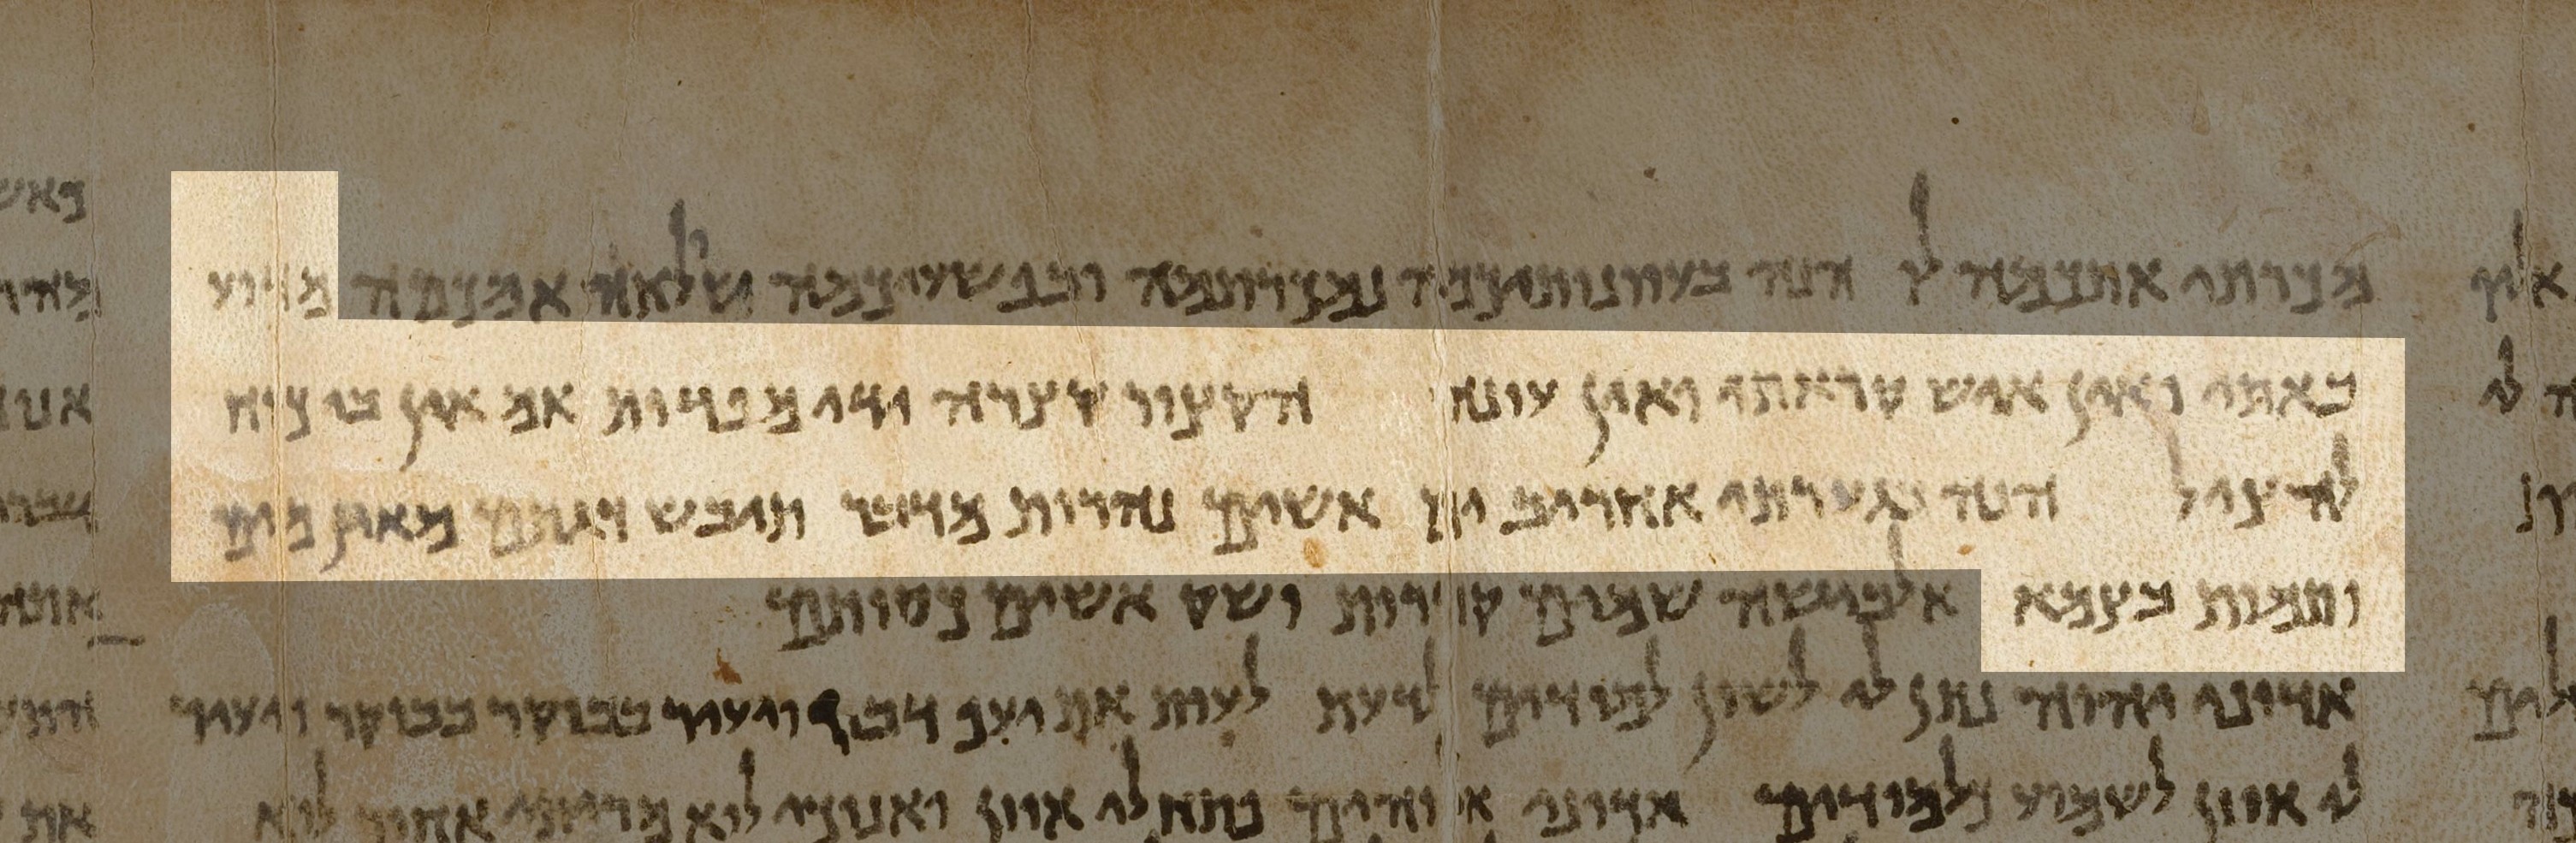 מכרתי אתכמה לו הנה בעוונותיכמה נמכרתמה ובפשעיכמה שולחה אמכמה מדוע
באתי ואין איש קראתי ואין עונה הקצור קצרה ידי מפדות אמ אין בי כוח
להציל הנה בגערתי אחריב ים אשים נהרות מדבר תיבש דגתם מאין מים
ותמות בצמא אלבישה שמים קדרות ושק אשים כסותם
אדוני יהוה נתן לי לשון למודים לדעת לעות את יעף דבר ויעיר בבוקר בבוקר ויעיר
לי אוזן לשמוע כלמודים אדוני אלוהים פתח לי אוזן ואנוכי לוא מריתי אחור לוא